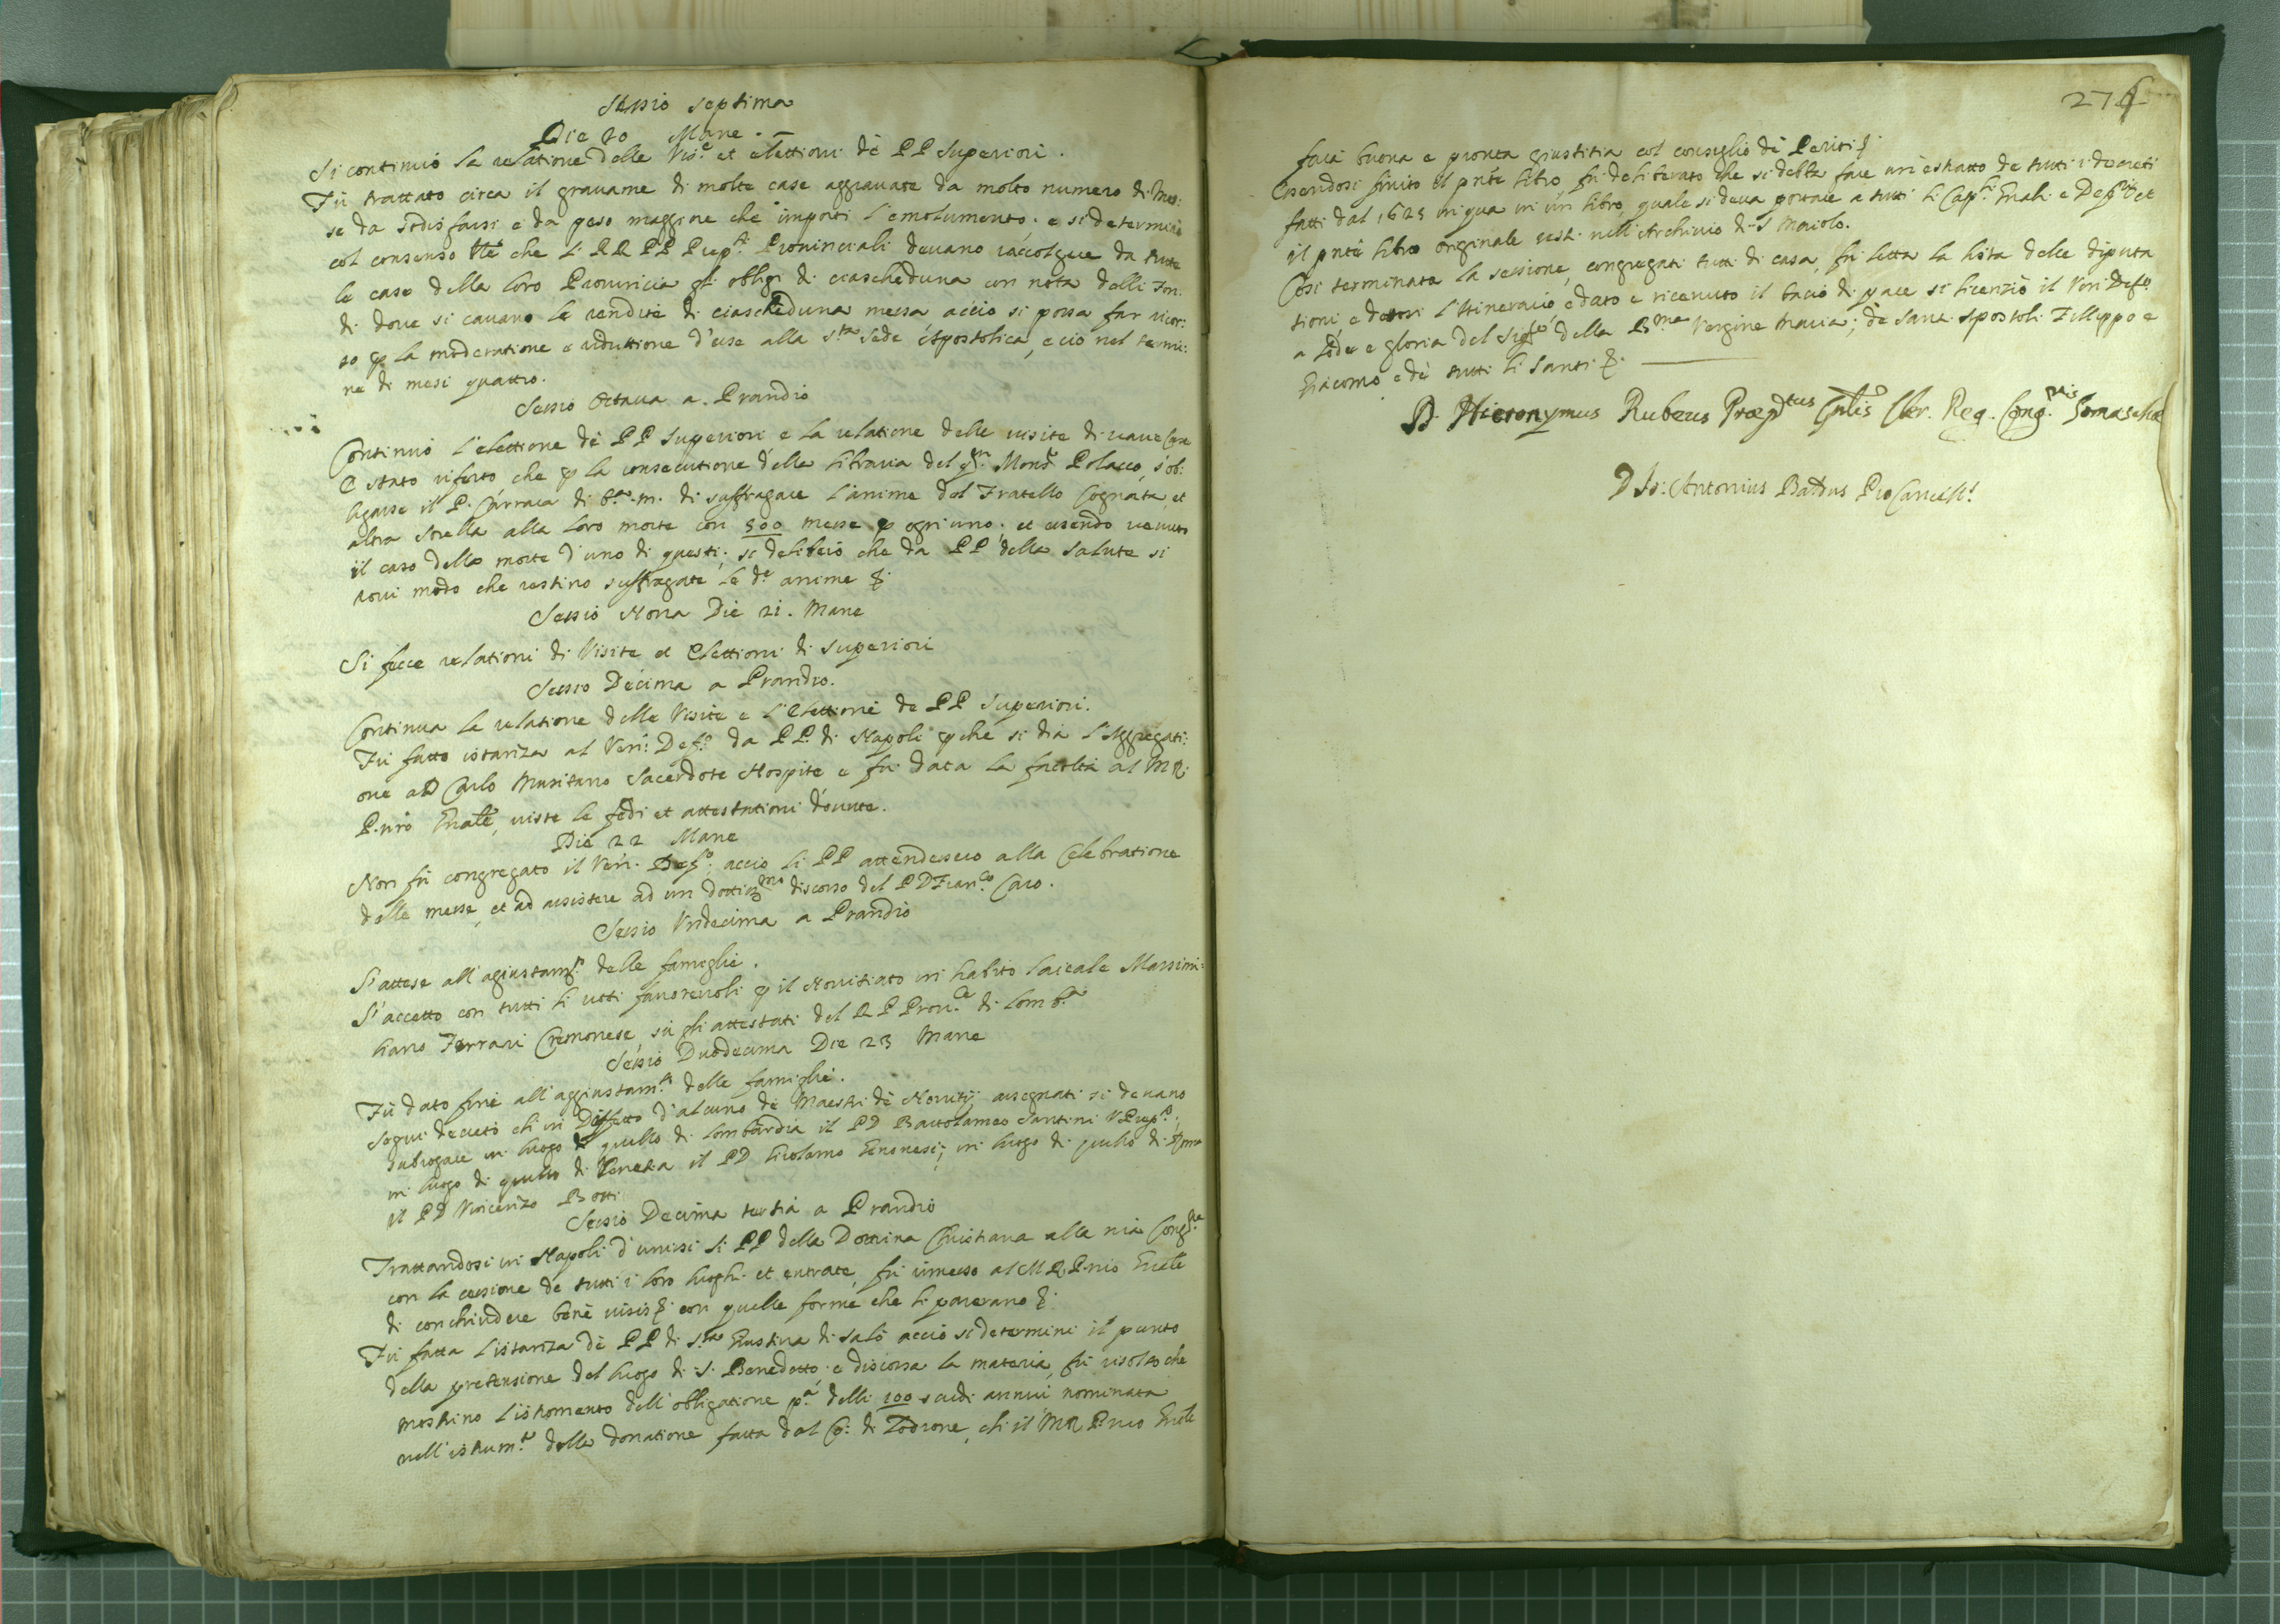 Sessio septima
Die 20 Mane.
Si continuò la relatione delle Vis.e et elettioni dè PP Superiori.
Fù trattato circa il grauame di molte case aggrauate da molto numero di Mes:
se da sodisfarsi e da peso maggiore che importi l'emolumento. e si determinò
col consenso che li RR PP Prep.ti Prouinciali deuano raccolgere da tutte
le case della loro Prouincia gli oblighi di ciascheduna con nota delli fon:
di doue si cauano le rendite di ciascheduna messa acciò si possa far ricor:
so p la moderatione e riduttione d'esse alla S.ta Sede Apostolica, e ciò nel termi:
ne di mesi quattro.
Sessio Octaua a Prandio
Continuò l'elettione dè PP Superiori e la relatione delle visite di varie Case
È stato riferto che p la consecutione della libraria del qm. Mons.r Polacco, s'ob:
ligasse il P. Carrara di b.a m. di suffragare l'anime del Fratello Cognata, et
altra Sorella alla loro morte con 500 messe p ogn'uno. et essendo venuto
il caso della morte d'uno di questi; si deliberò che da PP della Salute si
troui modo che restino suffragate le d.e anime &.
Sessio Nona Die 21. Mane
Si fecce relationi di Visite et Elettioni di Superiori
Sessio Decima a Prandio.
Continua la relatione delle Visite e l'Elettione de PP Superiori.
Fù fatto istanza al Ven: Def.o da PP. di Napoli pche si dia l'Aggregati:
one a D Carlo Musitano Sacerdote Hospite e fù data la facoltà al M R.
P. nro Gnale, viste le fedi et attestationi douute.
Die 22 Mane
Non fù congregato il Ven. Def.o acciò li PP attendessero alla Celebratione
delle messe, et ad assistere ad un dottiss.mo discorso del P D Fran.co Caro.
Sessio Vndecima a Prandio
S'attese all'agiustam.to delle famiglie.
S'accettò con tutti li voti fauoreuoli p il Nouitiato in habito laicale Massimi:
liano Ferrari Cremonese, sù gli attestati del R P Prou.le di Lomb.a
Sessio Duodecima Die 23 Mane
Fù dato fine all'aggiustam.to delle famiglie.
Seguì decreto ch'in Diffetto d'alcuno de Maestri dè Nouitij assegnati si deuano
subrogare in luogo di quello di Lombardia il P D Bartolameo Santini V Prep.o;
in luogo di quello di Venetia il P D Girolamo Genouesi; in luogo di quello di Roma
il P D Vincenzo Botti
Sessio Decima tertia a Prandio
Trattandosi in Napoli d'unirsi li PP della Dottrina Christiana alla nra Cong.ne
con la cessione de tutti i loro luoghi et entrate, fù rimesso al M R P. nro Gnale
di conchiudere benè visis &. con quelle forme che li pareranno &.
Fù fatta l'istanza dè PP di S.ta Giustina di Salò acciò si determini il punto
della pretensione del luogo di S. Benedetto; e discorsa la materia, fù risolto che
mostrino l'istromento dell'obligatione p.a delli 100 scudi annui, nominata
nell'istrum.to della donatione fatta dal Co: di Lodrone, ch'il M R P. nro Gnale
274
farà buona e pronta giustitia col consiglio dè Periti &.
Essendosi finito il pnte libro fù deliberato che si debba fare un'estratto de tutti i decreti
fatti dal 1625 in qua in un libro, quale si deua portare a tutti li Cap.li Gnali e Def.rij et
il pnte libro originale resti nell'Archiuio di S Maiolo.
Così terminata la sessione, congregati tutti di casa, fù letta la lista delle diputa
tioni, e dettosi l'Itinerario, e dato e riceuuto il bacio di pace si licenziò il Ven Def.o
a Lode e gloria del Sig.re della B.ma Vergine Maria; de Santi Apostoli Filippo e
Giacomo e dè tutti li Santi &.
D. Hieronymus Rubeus Præp.tus Gnlis Cler. Reg. Cong.nis Somaschæ
D Io: Antonius Baldus ProCancell.s